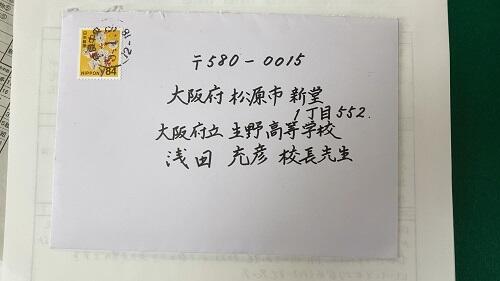 日本郵便
NIPPON
84
12-18
〒580-0015
大阪府 松原市 新堂
1丁目552.
大阪府立 生野高等学校
浅田 充彦 校長先生